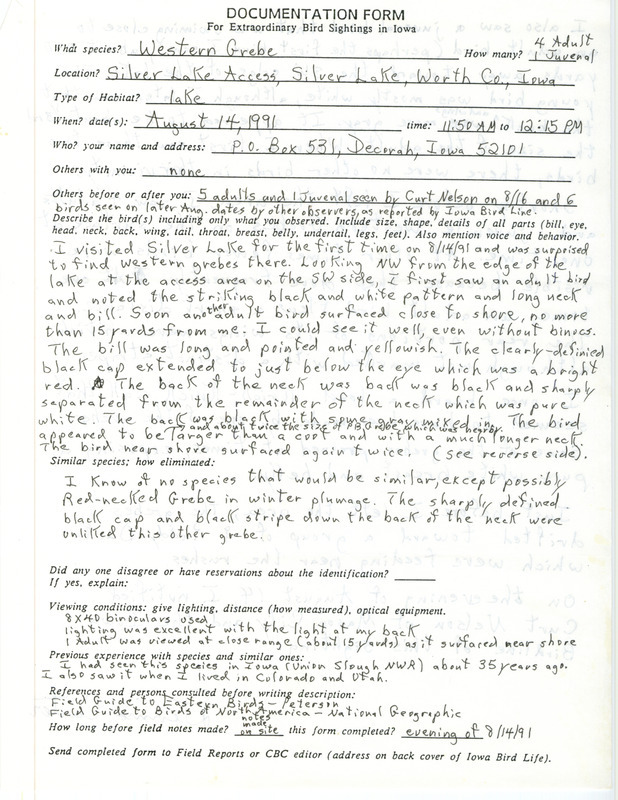 DOCUMENTATION FORM
For Extraordinary Bird Sightings in Iowa
What species? Western Grebe How many? 4 Adult 1 Juvenal
Location? Silver Lake Access, Silver Lake, Worth Co., Iowa
Type of Habitat? lake
When? date(s): August 14, 1991 time: 11:50 AM to 12:15 PM
Who? your name and address: P.O. Box 531, Decorah, Iowa 52101
Others with you: none
Others before or after you: 5 adults and 1 Juvenal seen by Curt Nelson on 8/16 and 6
birds seen on later Aug. dates by other observers, as reported by Iowa Bird Line.
Describe the bird(s) including only what you observed. Include size, shape, details of all parts (bill, eye,
head, neck, back, wing, tail, throat, breast, belly, undertail, legs, feet). Also mention voice and behavior.
I visited Silver Lake for the first time on 8/14/91 and was surprised
to find western grebes there. Looking NW from the edge of the
lake at the access area on the SW side, I first saw an adult bird
and noted the striking black and white pattern and long neck
and bill. Soon another adult bird surfaced close to shore, no more
than 15 yards from me. I could see it well, even without binocs.
The bill was long and pointed and yellowish. The clearly-definied
black cap extended to just below the eye which was a bright
red. The back of the neck was back was black and sharply
separated from the remainder of the neck which was pure
white. The back was black with some gray mixed in. The bird
appeared to be larger than a coot and with a much longer neck
and about twice the size of P B Grebe which was nearby.
The bird near shore surfaced again twice. (see reverse side).
Similar species; how eliminated:
I Know of no species that would be similar, except possibly
Red-necked Grebe in winter plumage. The sharply defined
black cap and black stripe down the back of the neck were
unliked this other grebe.
Did any one disagree or have reservations about the identification?
If yes, explain:
Viewing conditions: give lighting, distance (how measured), optical equipment.
8x40 binoculars used
lighting was excellent with the light at my back
1 Adult was viewed at close range (about 15 yards) as it surfaced near shore
Previous experience with species and similar ones:
I had seen this species in Iowa (Union Slough NWR) about 35 years ago.
I also saw it when I lived in Colorado and Utah.
References and persons consulted before writing description:
Field Guide to Eastern Birds - Peterson
Field Guide to Birds of North America - National Geographic
How long before field notes made? notes made on site this form completed? evening of 8/14/91
Send completed form to Field Reports or CBC editor (address on back cover of Iowa Bird Life).